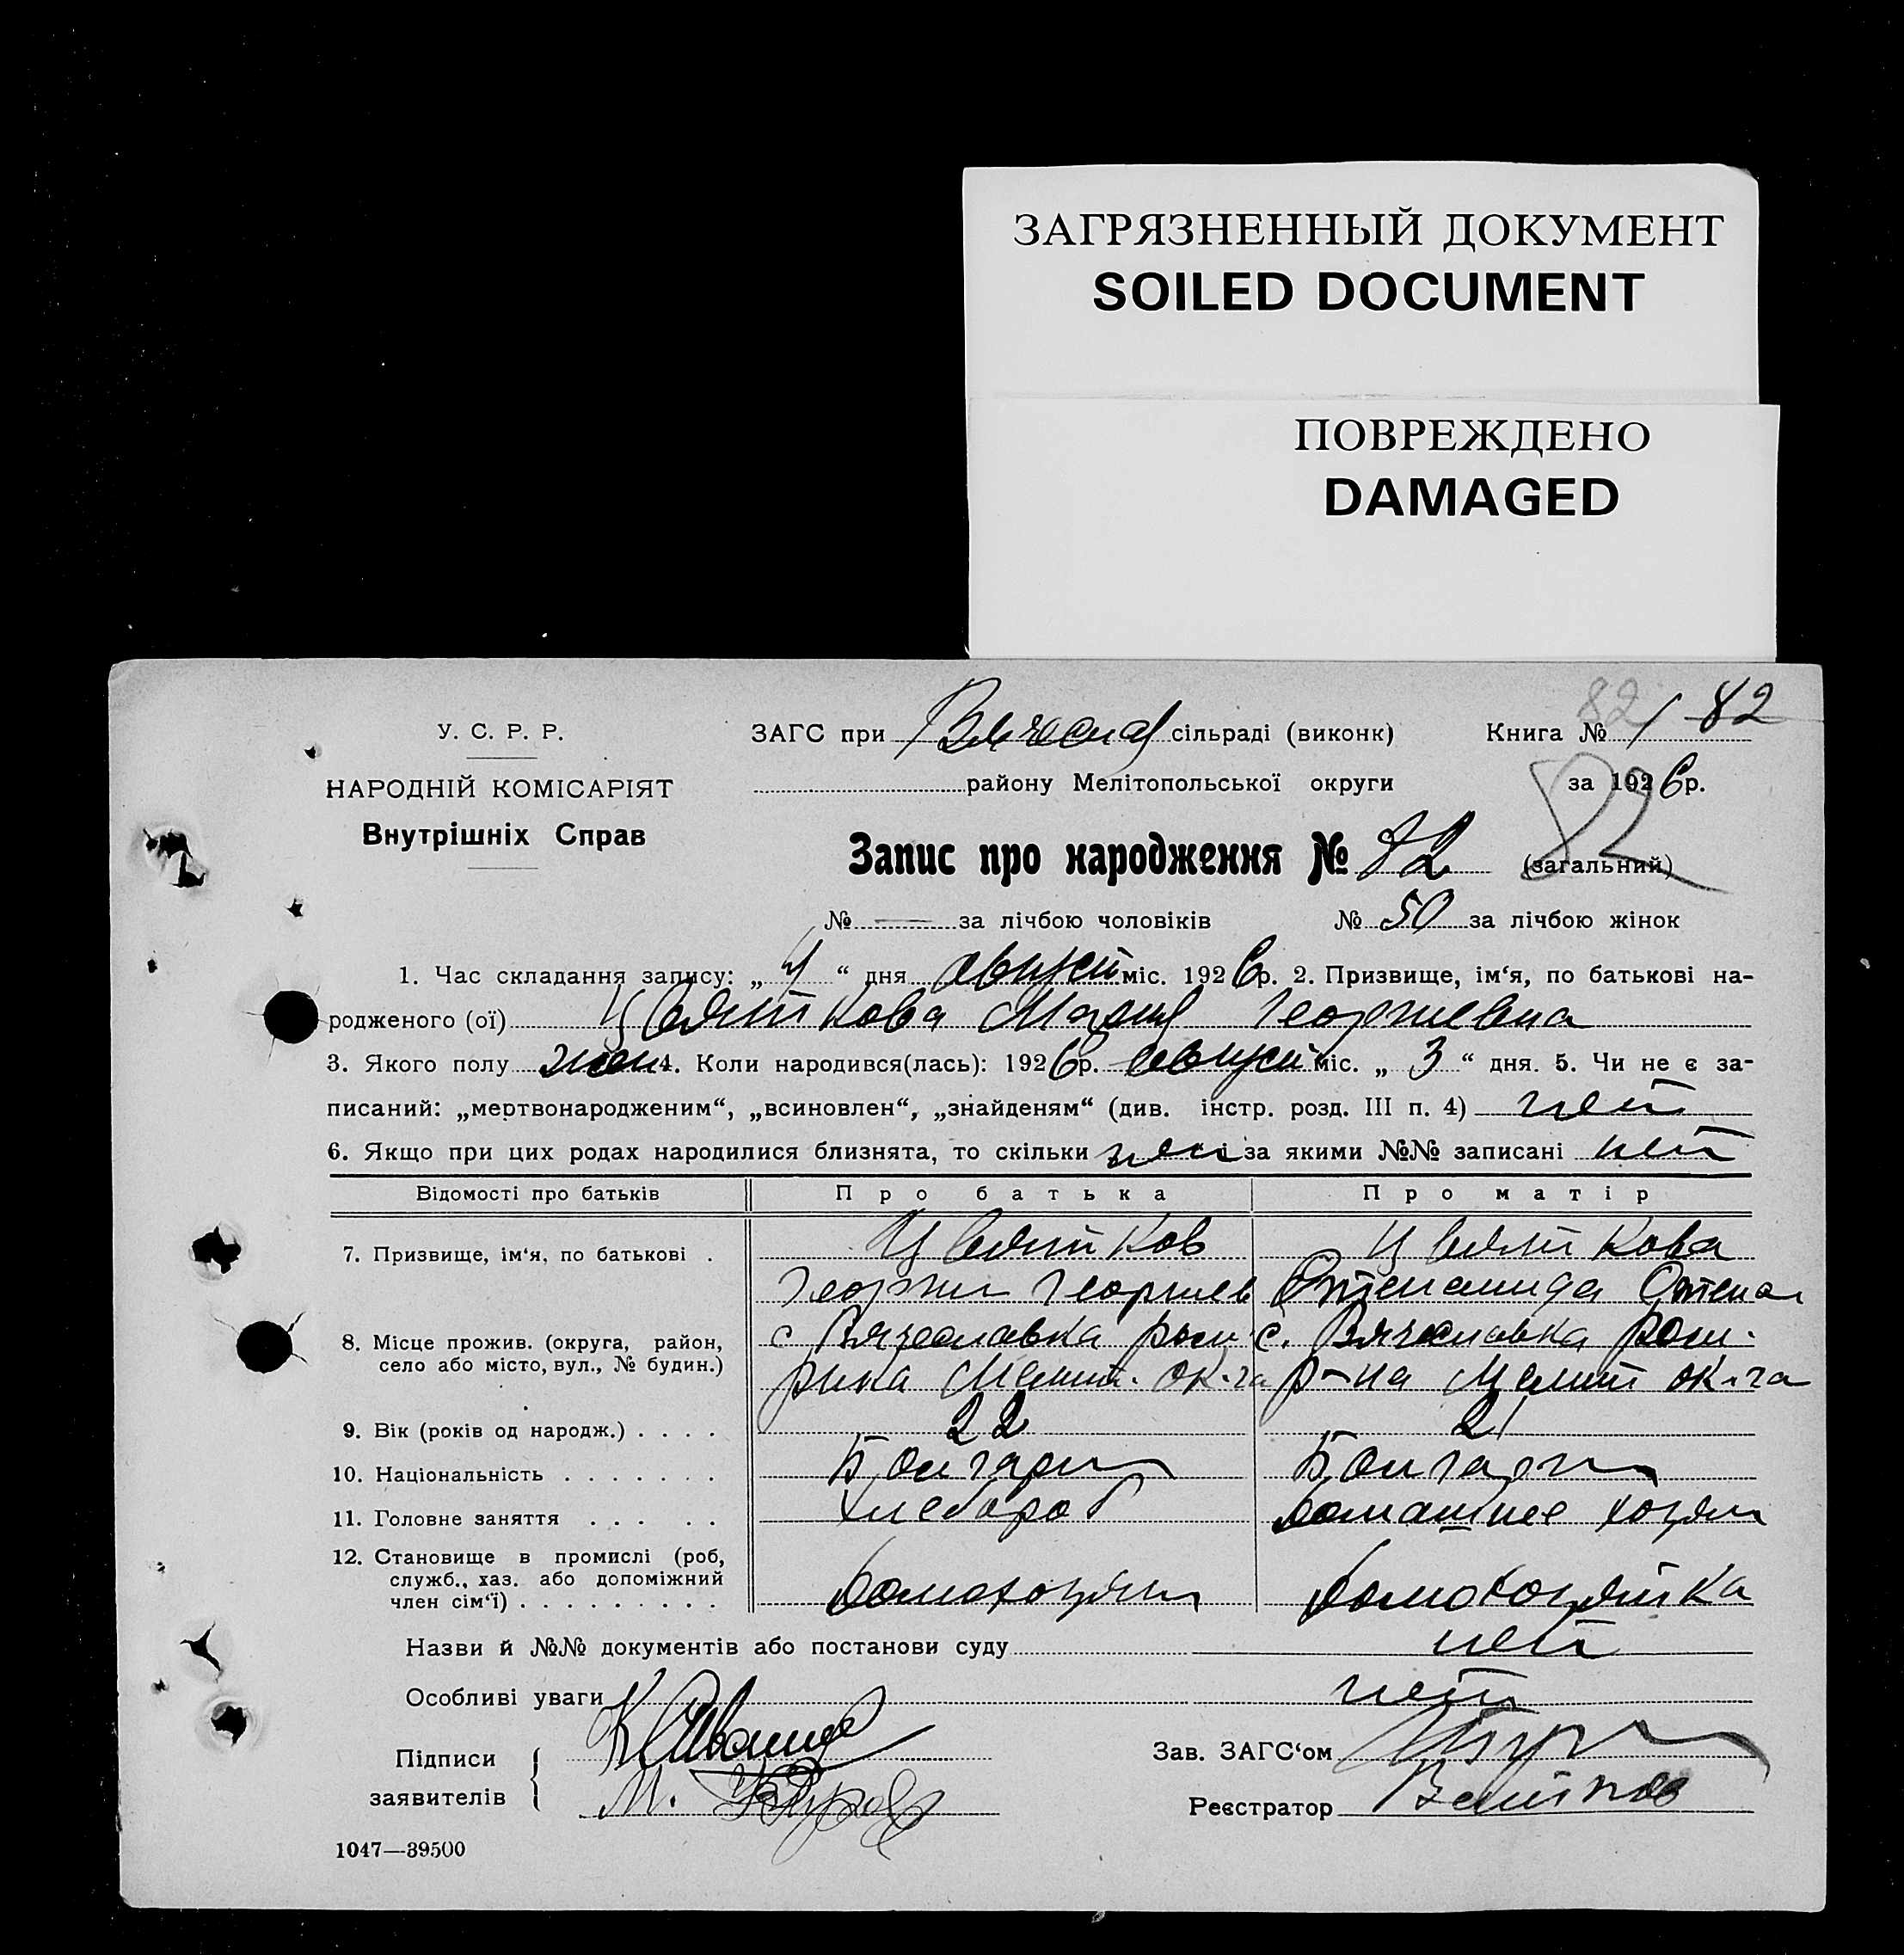 ЗАГРЯЗНЕННЫЙ ДОКУМЕНТ
SOILED DOCUMENT
ПОВРЕЖДЕНО
DAMAGED
82 1 82
У. С. Р. Р. ЗАГС при Вячеслав сільраді (виконк) Книга №
НАРОДНІЙ КОМІСАРІЯТ району Мелітопольської округи за 1926 р.
Внутрішніх Справ
Запис про народження № 82 (загальний) 82
№ — за лічбою чоловіків № 50 за лічбою жінок
1. Час складання запису: „4“ дня август міс. 1926 р. 2. Призвище, ім‘я, по батькові на-
родженого (ої) Цветкова Мария Георгиевна
3. Якого полу жен 4. Коли народився(лась): 1926 р. август міс. „3“ дня. 5. Чи не є за-
писаний: „мертвонародженим“, „всиновлен“, „знайденям“ (див. інстр. розд. III п. 4) нет
6. Якщо при цих родах народилися близнята, то скільки нет за якими №№ записані нет
Відомості про батьків Про батька Про матір
7. Призвище, ім‘я, по батькові . Цветков Цветкова
Георги Георгиев Степан
8. Місце прожив. (округа, район, с Вячеславка с. Вячеславка
село або місто, вул., № будин.) р-на Мелит. ок-га р-на Мелит ок-га
9. Вік (років од народж.) . . . . 22 21
10. Національність . . . . . . . Болгарин
11. Головне заняття . . . . . хлебороб домашнее хозяй
12. Становище в промислі (роб,
служб., хаз. або допоміжний домохозяин домохозяйка
член сім‘ї) . . . . . . . . .
Назви й №№ документів або постанови суду нет
Особливі уваги нет
Підписи Зав. ЗАГС‘ом
заявителів М. Реєстратор
1047—39500